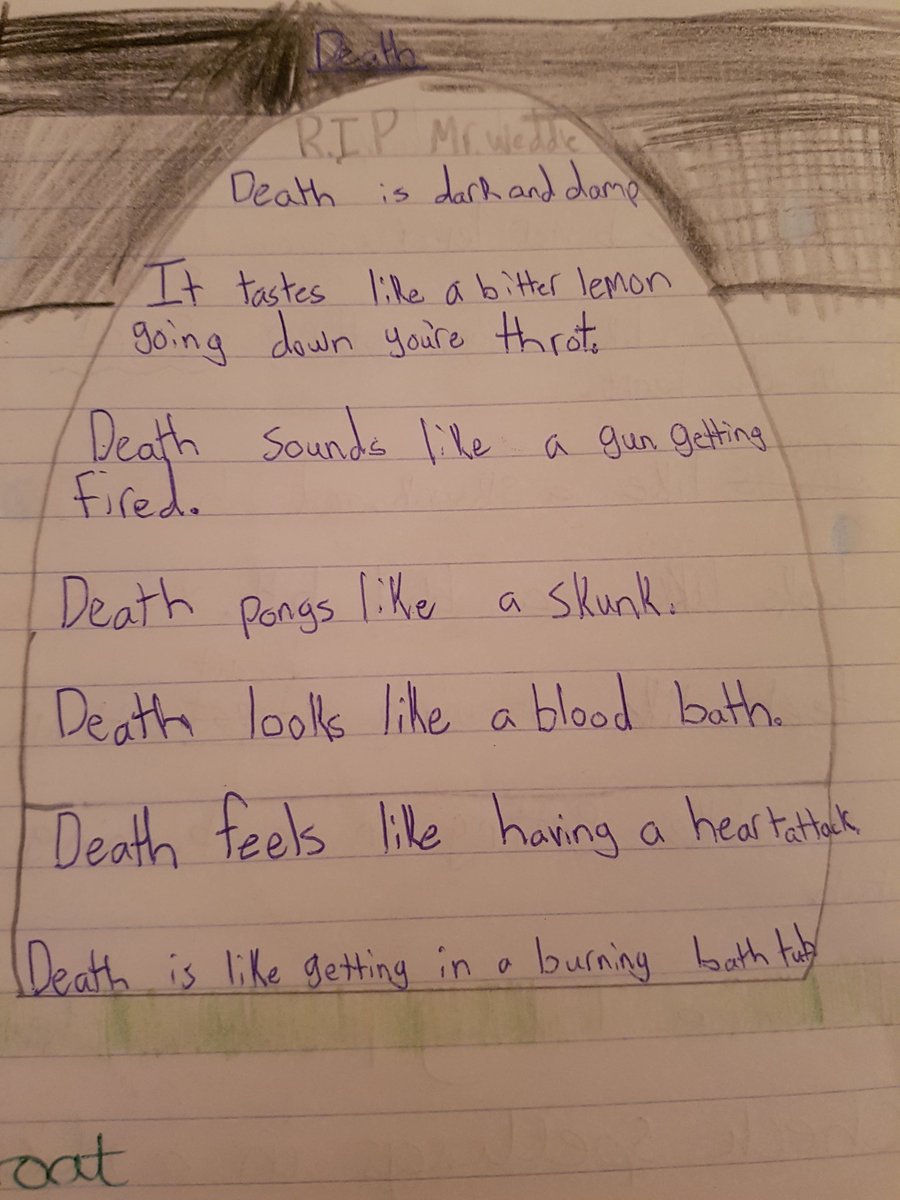 Death
R.I.P Mr. Weddle
Death is dark and damp
It tastes like a bitter lemon
going down you're throt.
Death sounds like a gun getting
fired.
Death pongs like a skunk.
Death looks like a blood bath.
Death feels like having a heart attack.
Death is like getting in a burning bath tub
oat